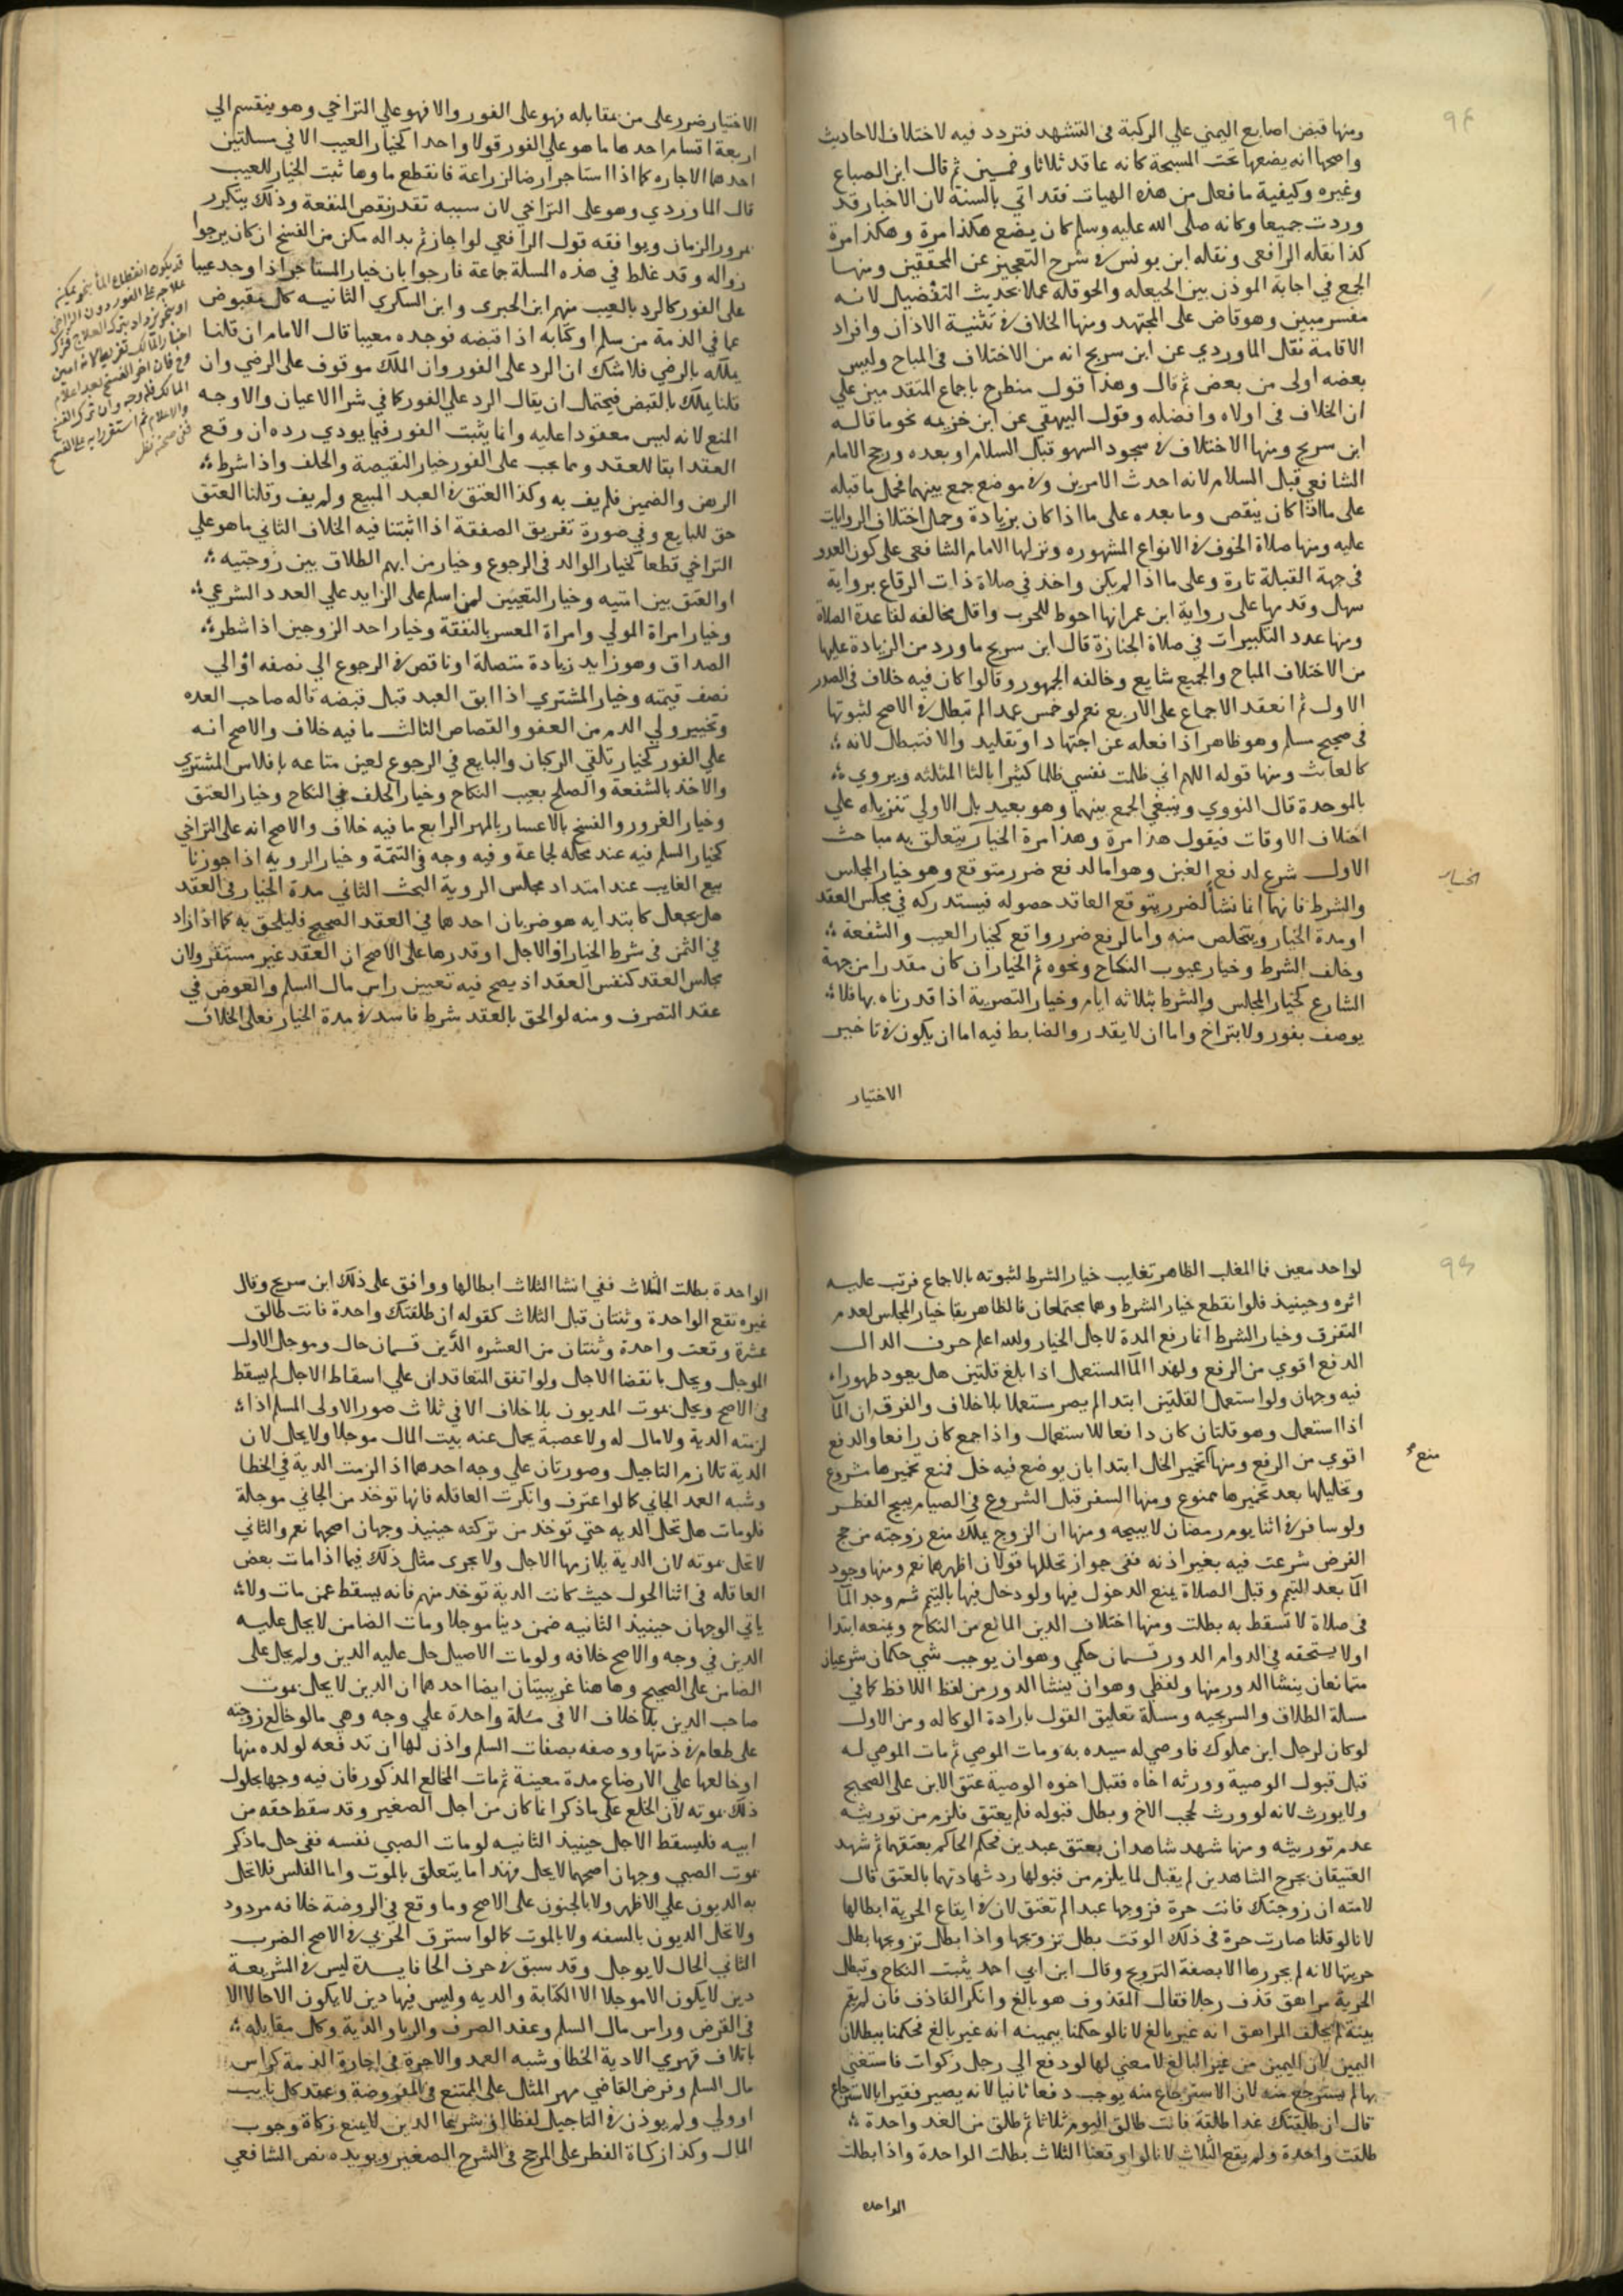 ومنها قبض اصابع اليمني علي الركبة في التشهد فتردد فيه لاختلاف الاحاديث
واصحها انه يضعها تحت المسبحة كانه عاقد ثلاثا وخمسين ثم قال ابن الصباع
وغيره وكيفية ما فعل من هذه الهيات فقد اتي بالسنة لان الاخبار قد
وردت جميعا وكانه صلى الله عليه وسلم كان يضع هكذا مرة وهكذا مرة
كذا نقله الرافعى ونقله ابن يونس في شرح التعجيز عن المحققين ومنها
الجمع في اجابة الموذن بين الحيعله والحوقله عملا بحديث التفضيل لانه
مفسر مبين وهو قاض على المجتهد ومنها الخلاف في تثنية الاذان وافراد
الاقامة نقل الماوردي عن ابن سريج انه من الاختلاف في المباح وليس
بعضه اولى من بعض ثم قال وهذا قول منطرح باجماع المتقدمين علي
ان الخلاف في اولاه وافضله وقول البيهقي عن ابن خزيمه نحو ما قاله
ابن سريج ومنها الاختلاف في سجود السهو قبل السلام او بعده ورجح الامام
الشافعي قبل السلام لانه احدث الامرين وفي موضع جمع بينهما فحمل ما قبله
على ما اذا كان ينقص وما بعده على ما اذا كان بزيادة وحمل اختلاف الروايات
عليه ومنها صلاة الخوف في الانواع المشهوره ونزلها الامام الشافعي على كون العدو
في جهة القبلة تارة وعلى ما اذا لم يكن واخذ في صلاة ذات الرقاع برواية
سهل وقدمها على رواية ابن عمر انها احوط للحرب واقل مخالفه لقاعدة الصلاة
ومنها عدد التكبيرات في صلاة الجنازة قال ابن سريج ما ورد من الزيادة عليها
من الاختلاف المباح والجميع شايع وخالفه الجمهور وقالوا كان فيه خلاف في الصدر
الاول ثم انعقد الاجماع على الاربع نعم لو خمس عمدا لم تبطل في الاصح لثبوتها
في صحيح مسلم وهو ظاهر اذا فعله عن اجتهاد او تقليد والا فتبطل لانه
كالعابث ومنها قوله اللهم اني ظلمت نفسي ظلما كثيرا بالثا المثلثه ويروي
بالموحدة قال النووي وينبغي الجمع بينهما وهو بعيد بل الاولي تنزيله علي
اختلاف الاوقات فيقول هذا مرة وهذا مرة الخيار يتعلق به مباحث
الاول شرع لدفع الغبن وهو اما لدفع ضرر متوقع وهو خيار المجلس
والشرط فانهما انما نشا لضرر يتوقع العاقد حصوله فيستدركه في مجلس العقد
او مدة الخيار ويتخلص منه واما لرفع ضرر واقع كخيار العيب والشفعة
وخلف الشرط وخيار عيوب النكاح ونحوه ثم الخيار ان كان مقدرا من جهة
الشارع كخيار المجلس والشرط بثلاثه ايام وخيار التصرية اذا قدرناه بها فلا
يوصف بفور ولا بتراخ واما ان لا يقدر والضابط فيه اما ان يكون في تاخير
الاختيار
الخيار
الاختيار ضرر على من مقابله فهو على الفور والا فهو على التراخي وهو ينقسم الي
اربعة اقسام احدها ما هو علي الفور قولا واحدا كخيار العيب الا في مسالتين
احدهما الاجاره كما اذا استاجر ارضا لزراعة فانقطع ماوها ثبت الخيار للعيب
قال الماوردي وهو على التراخي لان سببه تعذر نقص المنفعة وذلك يتكرر
بمرور الزمان ويوافقه قول الرافعي لو اجاز ثم بدا له مكن من الفسخ ان كان يرجوا
زواله وقد غلط في هذه المسلة جماعة فارجوا بان خيار المستاجر اذا وجد عيبا
على الفور كالرد بالعيب منهم ابن الحبرى وابن السكري الثانيه كل مقبوض
عما في الذمة من سلم او كتابه اذا قبضه فوجده معيبا قال الامام ان قلنا
يملكه بالرضي فلا شك ان الرد على الفور وان الملك موقوف على الرضي وان
قلنا يملك بالقبض فيحتمل ان يقال الرد علي الفور كما في شرا الاعيان والاوجه
المنع لانه ليس معقودا عليه وانما يثبت الفور فيما يودي رده ان وقع
العقد ابقا للعقد ومما يجب على الفور خيار النقيصة والخلف واذا شرط
الرهن والضمين فلم يف به وكذا العتق في العبد المبيع ولم يف وقلنا العتق
حق للبايع وفي صورة تفريق الصفقة اذا اثبتنا فيه الخلاف الثاني ما هو علي
التراخي قطعا كخيار الوالد في الرجوع وخيار من ابهم الطلاق بين زوجتيه
او العتق بين امتيه وخيار التعيين لمن اسلم على الزايد علي العدد الشرعي
وخيار امراة المولي وامراة المعسر بالنفقة وخيار احد الزوجين اذا شطر
الصداق وهو زايد زيادة متصلة او ناقص في الرجوع الي نصفه او الي
نصف قيمته وخيار المشتري اذا ابق العبد قبل قبضه قاله صاحب العده
وتخيير ولي الدم من العفو والقصاص الثالث ما فيه خلاف والاصح انه
علي الفور كخيار تلقي الركبان والبايع في الرجوع لعين متاعه بافلاس المشتري
والاخذ بالشفعة والصلح بعيب النكاح وخيار الخلف في النكاح وخيار العتق
وخيار الغرور والفسخ بالاعسار بالمهر الرابع ما فيه خلاف والاصح انه على التراخي
كخيار السلم فيه عند محله لجماعة وفيه وجه في التتمة وخيار الرويه اذا جوزنا
بيع الغايب عند امتداد مجلس الروية البحث الثاني مدة الخيار في العقد
هل يجعل كابتدايه هو ضربان احدهما في العقد الصحيح فليلحق به كما اذا زاد
في الثمن في شرط الخيار او الاجل او قدرها على الاصح ان العقد غير مستقر ولان
مجلس العقد كنفس العقد اذ يصح فيه تعيين راس مال السلم والعوض في
عقد التصرف ومنه لو الحق بالعقد شرط فاسد في مدة الخيار فعلى الخلاف
لواحد معين فالمغلب الظاهر تغليب خيار الشرط لثبوته بالاجماع فرتب عليه
اثره وحينيذ فلو انقطع خيار الشرط وهما مجتمعان فالظاهر بقا خيار المجلس لعدم
التفرق وخيار الشرط انما رفع المدة لاجل الخيار والله اعلم حرف الدال
الدفع اقوي من الرفع ولهذا الما المستعمل اذا بلغ قلتين هل يعود طهورا
فيه وجهان ولو استعمل القلتين ابتدا لم يصر مستعملا بلا خلاف والفرق ان الما
اذا استعمل وهو قلتان كان دافعا للاستعمال واذا جمع كان رافعا والدفع
اقوي من الرفع ومنها تخمير الخل ابتدا بان يوضع فيه خل فمنع تخميرها مشروع
وتخليلها بعد تخميرها ممنوع ومنها السفر قبل الشروع في الصيام يبيح الفطر
ولو سافر في اثنا يوم رمضان لا يبيحه ومنها ان الزوج يملك منع زوجته من حج
الفرض شرعت فيه بغير اذنه ففي جواز تحللها قولان اظهرهما نعم ومنها وجود
الما بعد التيمم وقبل الصلاة يمنع الدخول فيها ولو دخل فيها بالتيمم ثم وجد الما
في صلاة لا تسقط به بطلت ومنها اختلاف الدين المانع من النكاح ويمنعه ابتدا
اولا يستحقه في الدوام الدور قسمان حكمي وهو ان يوجب شي حكمان شرعيان
متمانعان ينشا الدور منها ولفظي وهو ان ينشا الدور من لفظ اللافظ كما في
مسالة الطلاق والسريجيه ومسلة تعليق القول بارادة الوكاله ومن الاول
لو كان لرجل ابن مملوك فاوصي له سيده به ومات الموصي ثم مات الموصي له
قبل قبول الوصية وورثه اخاه فقبل اخوه الوصية عتق الابن على الصحيح
ولا يورث لانه لو ورث لحجب الاخ وبطل قبوله فلم يعتق فلزم من توريثه
عدم توريثه ومنها شهد شاهدان بعتق عبدين فحكم الحاكم بعتقهما ثم شهد
العتيقان بجرح الشاهدين لم يقبل لما يلزم من قبولها رد شهادتهما بالعتق قال
لامته ان زوجتك فانت حرة فزوجها عبدا لم تعتق لان في ايقاع الحرية ابطالها
لانا لو قلنا صارت حرة في ذلك الوقت بطل تزويجها واذا بطل تزويجها بطل
حريتها لانه لم يحررها الا بصفة التزويج وقال ابن ابي احمد يثبت النكاح وتبطل
الحرية مراهق قذف رجلا فقال المقذوف هو بالغ وانكر القاذف فان لم يقم
بينة لم يحلف المراهق انه غير بالغ لانا لو حكمنا بيمينه انه غير بالغ فحكمنا ببطلان
اليمين لان اليمين من غير البالغ لا معني لها لو دفع الي رجل زكوات فاستغني
بها لم يسترجع منه لان الاسترجاع منه يوجب دفعا ثانيا لانه يصير فقيرا بالاسترجاع
قال ان طلقتك غدا طلقة فانت طالق اليوم ثلاثا ثم طلق من الغد واحدة
طلقت واحدة ولم يقع الثلاث لانا لو اوقعنا الثلاث بطلت الواحدة واذا بطلت
الواحده
منع
الواحدة بطلت الثلاث ففي انشا الثلاث ابطالها ووافق على ذلك ابن سريج وقال
غيره تقع الواحدة وثنتان قبل الثلاث كقوله ان طلقتك واحدة فانت طالق
عشرة وقعت واحدة وثنتان من العشره الدين قسمان حال وموجل الاول
الموجل ويحل بانقضا الاجل ولو اتفق المتعاقدان علي اسقاط الاجل لم يسقط
في الاصح ويحل بموت المديون بلا خلاف الا في ثلاث صور الاولى المسلم اذا
لزمته الدية ولا مال له ولا عصبة يحمل عنه بيت المال موجلا ولا يحل لان
الدية تلازم التاجيل وصورتان علي وجه احدهما اذا لزمت الدية في الخطا
وشبه العمد الجاني كما لو اعترف وانكرت العاقله فانها توخذ من الجاني موجلة
فلو مات هل تحل الديه حتي توخذ من تركته حينيذ وجهان اصحهما نعم والثاني
لا تحل بموته لان الدية يلازمها الاجل ولا يجرى مثل ذلك فيما اذا مات بعض
العاقله في اثنا الحول حيث كانت الدية توخذ منهم فانه يسقط عمن مات ولا
ياتي الوجهان حينيذ الثانيه ضمن دينا موجلا ومات الضامن لا يحل عليه
الدين في وجه والاصح خلافه ولو مات الاصيل حل عليه الدين ولم يحل على
الضامن على الصحيح وهاهنا غريبتان ايضا احدهما ان الدين لا يحل بموت
صاحب الدين بلا خلاف الا في مسلة واحدة علي وجه وهي ما لو خالع زوجته
على طعام في ذمتها ووصفه بصفات السلم واذن لها ان تدفعه لولده منها
او خالعها علي الارضاع مدة معينة ثم مات المخالع المذكور فان فيه وجها بحلول
ذلك بموته لان الخلع على ما ذكر انما كان من اجل الصغير وقد سقط حقه من
ابيه فليسقط الاجل حينيذ الثانيه لو مات الصبي نفسه ففي حل ما ذكر
بموت الصبي وجهان اصحهما لا يحل فهذا ما يتعلق بالموت واما الفلس فلا تحل
به الديون علي الاظهر ولا بالجنون على الاصح وما وقع في الروضة خلافه مردود
ولا تحل الديون بالسفه ولا بالموت كما لو استرق الحربي في الاصح الضرب
الثاني الحال لا يوجل وقد سبق في حرف الحا فايدة ليس في الشريعة
دين لا يكون الا موجلا الا الكتابة والديه وليس فيها دين لا يكون الا حالا الا
في القرض وراس مال السلم وعقد الصرف والربا والدية وكل مقابله
باتلاف قهري الا دية الخطا وشبه العمد والاجرة في اجارة الذمة كراس
مال السلم وفرض القاضي مهر المثل على الممتنع في المفوضة وعقد كل نايب
او ولي ولم يوذن في التاجيل لفظا او شرعا الدين لا يمنع زكاة وجوب
المال وكذا زكاة الفطر على المرجح في الشرح الصغير ويويده نص الشافعي